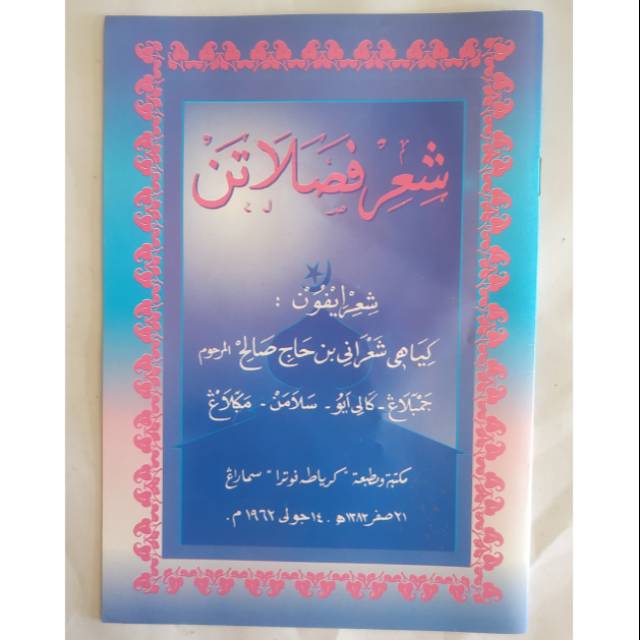 شِعِرْ فَصَلَاتَنْ
شِعِرْ إيْفُوْنْ :
كِيَاهِي شَعْرَانِي بن حَاج صَالِحْ المرحوم
جَمْبَلَاڠْ - كَالِي اَيُو - سَلَامَنْ - مَڮَلَاڠْ
مكتبة ومطبعة "كرياطه فوترا" سماراڠ
٢١ صفر ١٣٨٢ هـ - ١٤ جولى ١٩٦٢ م.